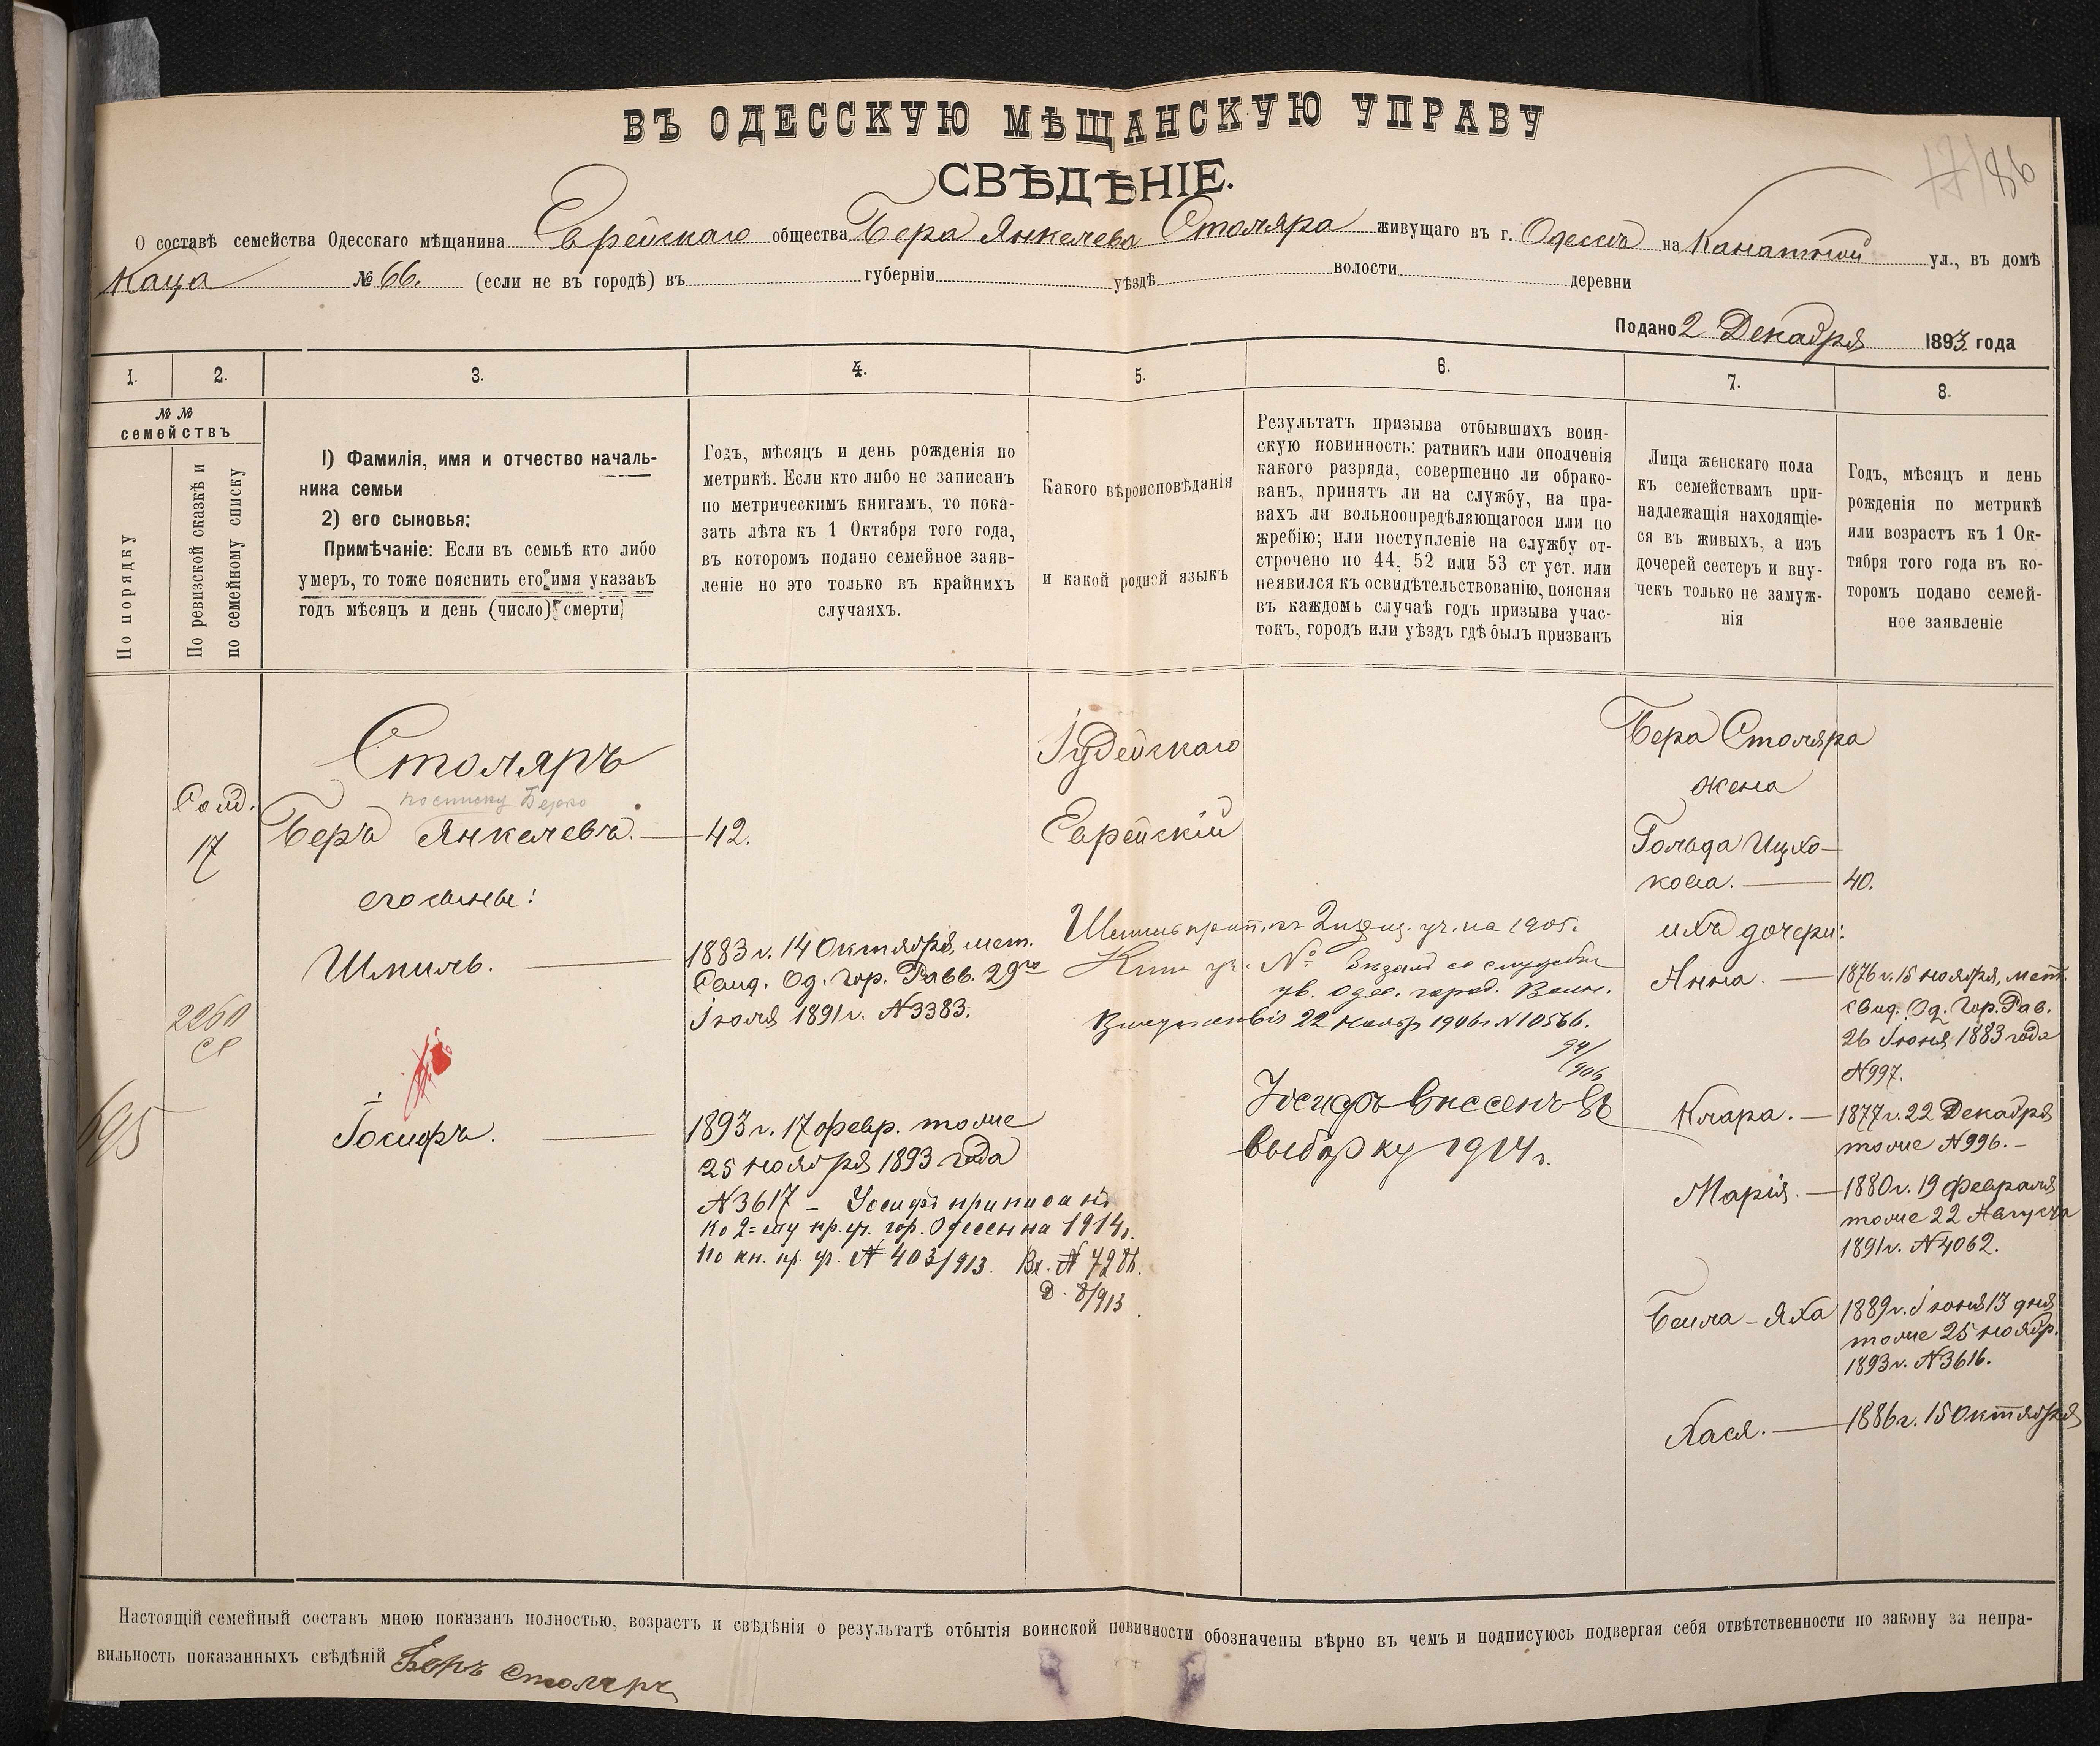 17 86
ВЪ ОДЕССКУЮ МѢЩАНСКУЮ УПРАВУ
СВѢДѢНІЕ.
О составѣ семейства Одесскаго мѣщанина Еврейскаго общества Бера Янкелева Столяра живущаго въ г. Одессѣ на Канатной ул., въ домѣ
Каца № 66. (если не въ городѣ) въ губерніи уѣздѣ волости деревни
Подано 2 Декабря 1893 года
1. 2. 3. 4. 5. 6. 7. 8.
№ №
семействъ
По порядку
По ревизской сказкѣ и
по семейному списку
1) Фамилія, имя и отчество началь-
ника семьи
2) его сыновья:
Примѣчаніе: Если въ семьѣ кто либо
умеръ, то тоже пояснить его имя указавъ
годъ мѣсяцъ и день (число) смерти
Годъ, мѣсяцъ и день рожденія по
метрикѣ. Если кто либо не записанъ
по метрическимъ книгамъ, то пока-
зать лѣта къ 1 Октября того года,
въ которомъ подано семейное заяв-
леніе но это только въ крайнихъ
случаяхъ.
Какого вѣроисповѣданія
и какой родной языкъ
Результатъ призыва отбывшихъ воин-
скую повинность: ратникъ или ополченія
какого разряда, совершенно ли обрако-
ванъ, принятъ ли на службу, на пра-
вахъ ли вольноопредѣляющагося или по
жребію; или поступленіе на службу от-
строчено по 44, 52 или 53 ст уст. или
неявился къ освидѣтельствованію, поясняя
въ каждомъ случаѣ годъ призыва учас-
токъ, городъ или уѣздъ гдѣ былъ призванъ
Лица женскаго пола
къ семействамъ при-
надлежащія находящіе-
ся въ живыхъ, а изъ
дочерей сестеръ и вну-
чекъ только не замуж-
нія
Годъ, мѣсяцъ и день
рожденія по метрикѣ
или возрастъ къ 1 Ок-
тября того года въ ко-
торомъ подано семей-
ное заявленіе
Солд.
17
2260
695
Столяръ
по списку Берко
Беръ Янкелевъ. — 42.
его сыны:
Шмиль. —
1883 г. 14 Октября, мет.
Свид. Од. Гор. Равв. 29го
Іюля 1891 г. № 3383.
Іосифъ. —
1893 г. 17 февр. тоже
25 ноября 1893 года
№ 3617 – Іосифъ приписанъ
ко 2=му пр. уч. гор. Одессы на 1914 г.
по кн. пр. уч. № 403/913. Вх. № 7286.
Д. 8/913
Іудейскаго
Еврейскій
Шмиль прип. къ 2 уч. на 1905 г.
№
Одес. город. Воин.
22 Ноябр 1906 г № 10566.
94/906
Іосифъ внесенъ въ
выборку 1914 г.
Бера Столяра
жена
Гольда Ицхо-
кова. — 40.
ихъ дочери:
Анна. — 1876 г. 15 ноября, мет.
свид. Од. Гор. Рав.
26 Іюня 1883 года
№ 997.
Клара. — 1877 г. 22 Декабря
тоже № 996. –
Марія. — 1880 г. 19 февраля
тоже 22 Августа
1891 г. № 4062.
Беила-Яха 1889 г. Іюня 13 дня
тоже 25 ноябр.
1893 г. № 3616.
Хася. — 1886 г. 15 Октября
Настоящій семейный составъ мною показанъ полностью, возрастъ и свѣдѣнія о результатѣ отбытія воинской повинности обозначены вѣрно въ чемъ и подписуюсь подвергая себя отвѣтственности по закону за непра-
вильность показанныхъ свѣдѣній Беръ Столяръ